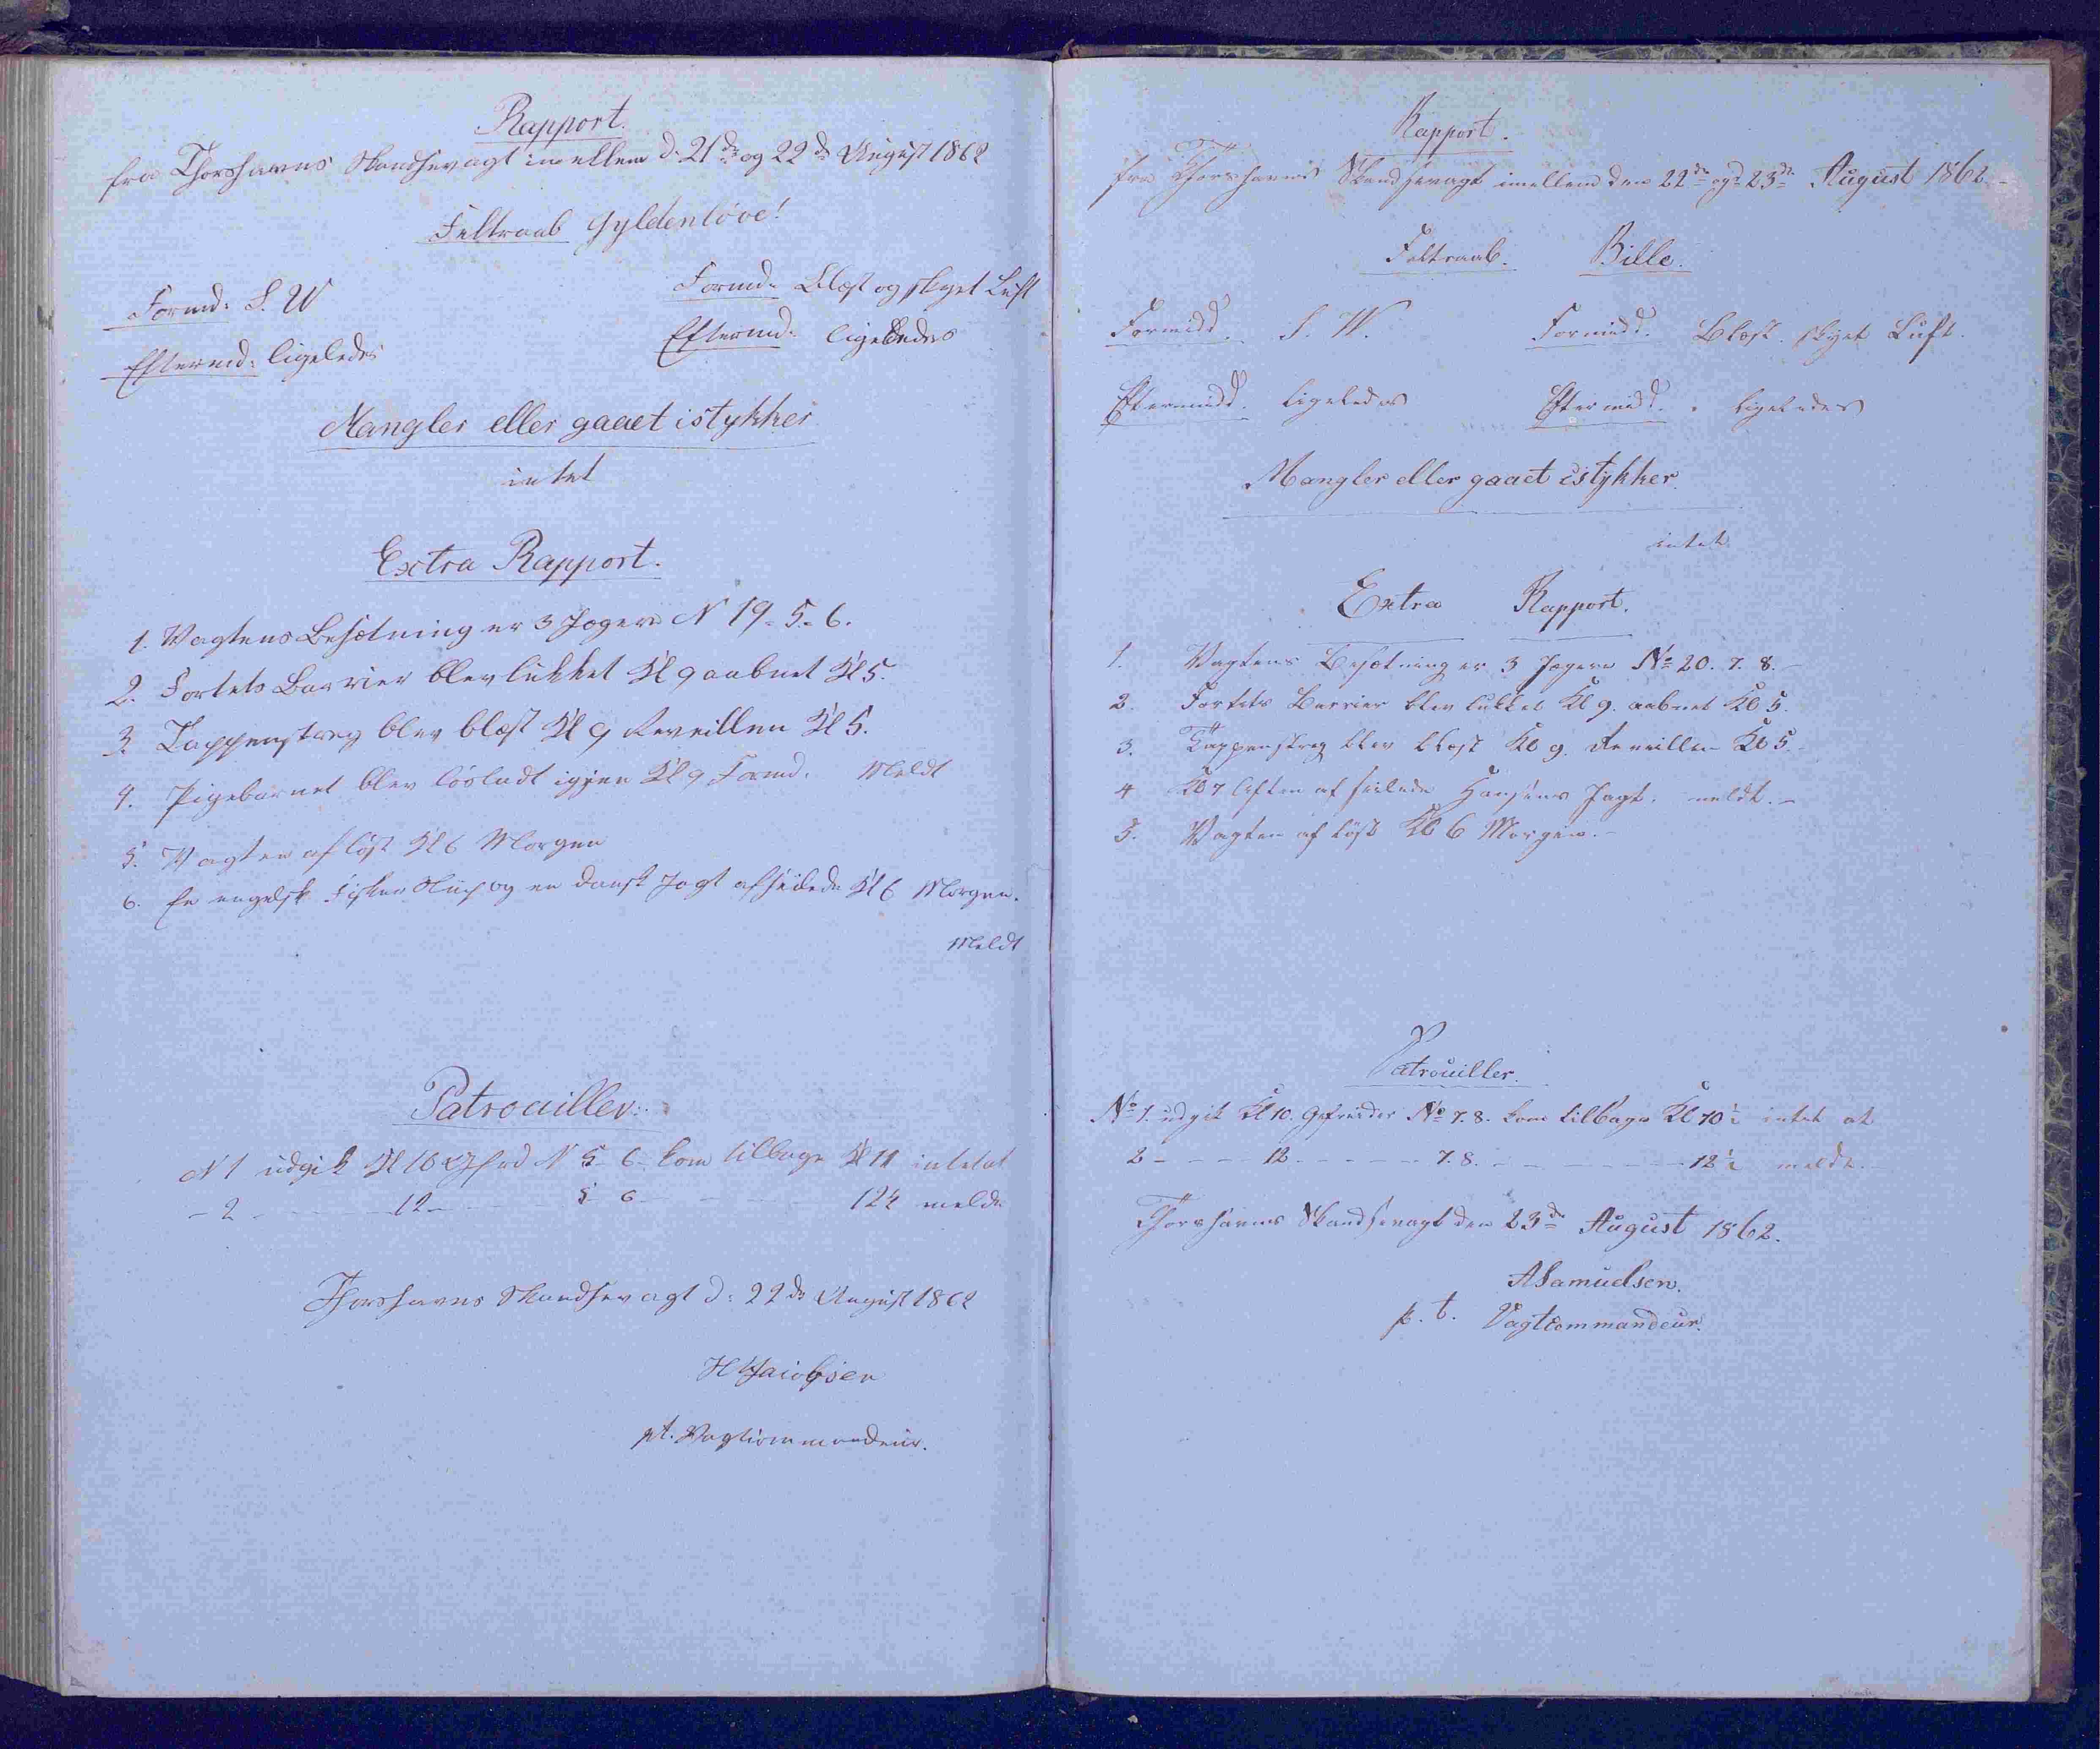 Rapport.
fra Thorshavns Skandsevagt imellem d. 21de og 22de August 1862
Feltraab Gyldenløve!
Formd: S. W
Formd: Blæst og skyet Luft
Eftermd: ligeledes
Eftermd: ligeledes
Mangler eller gaaet istykker
intet
Extra Rapport.
1. Vagtens Besætning er 3 Jægere N 19. 5. 6.
2. Fortets Barrier blev lukket Kl 9 aabnet Kl 5.
3. Tappenstreg blev blæst Kl 9 Reveillen Kl 5.
4. Pigebarnet blev løsladt igjen Kl 9 Formd. Meldt
5. Vagten afløst Kl 6 Morgen
6. En engelsk Fisker Slup og en dansk Jagt afseilede Kl 6 Morgen.
Meldt
Patrouiller:
N 1 udgik Kl 10 Gefrd N 5 6 kom tilbage Kl 11 intet at
- 2 - - - 12 - - - 5 6 - - - 12½ melde
Thorshavns Skandsevagt d: 22de August 1862
H Jacobsen
pt. Vagtcommandeur.
Rapport.
fra Thorshavns Skandsevagt imellem den 22de og 23de August 1862.-
Feltraab. Bille.
Formidd. S. W. Formidd. Blæst. skyet Luft.
Eftermidd. ligeledes Eftermidd. ligeledes
Mangler eller gaaet istykker.
intet
Extra Rapport.
1. Vagtens Besætning er 3 Jægere No 20. 7. 8.-
2. Fortets Barrier blev lukket Kl 9. aabnet Kl 5.
3. Tappenstreg blev blæst Kl 9. Reveillen Kl 5.-
4 Kl 7 Aften afseilede Hansens Jagt. meldt.-
5. Vagten afløst Kl 6 Morgen.-
Patrouiller.
No 1. udgik Kl 10. Gefreider No 7. 8. kom tilbage Kl 10½ intet at
2 - - - 12 - - - 7. 8. - - - 12½ melde.-
Thorshavns Skandsevagt den 23de August 1862.
A Samuelsen.
p. t. Vagtcommandeur.